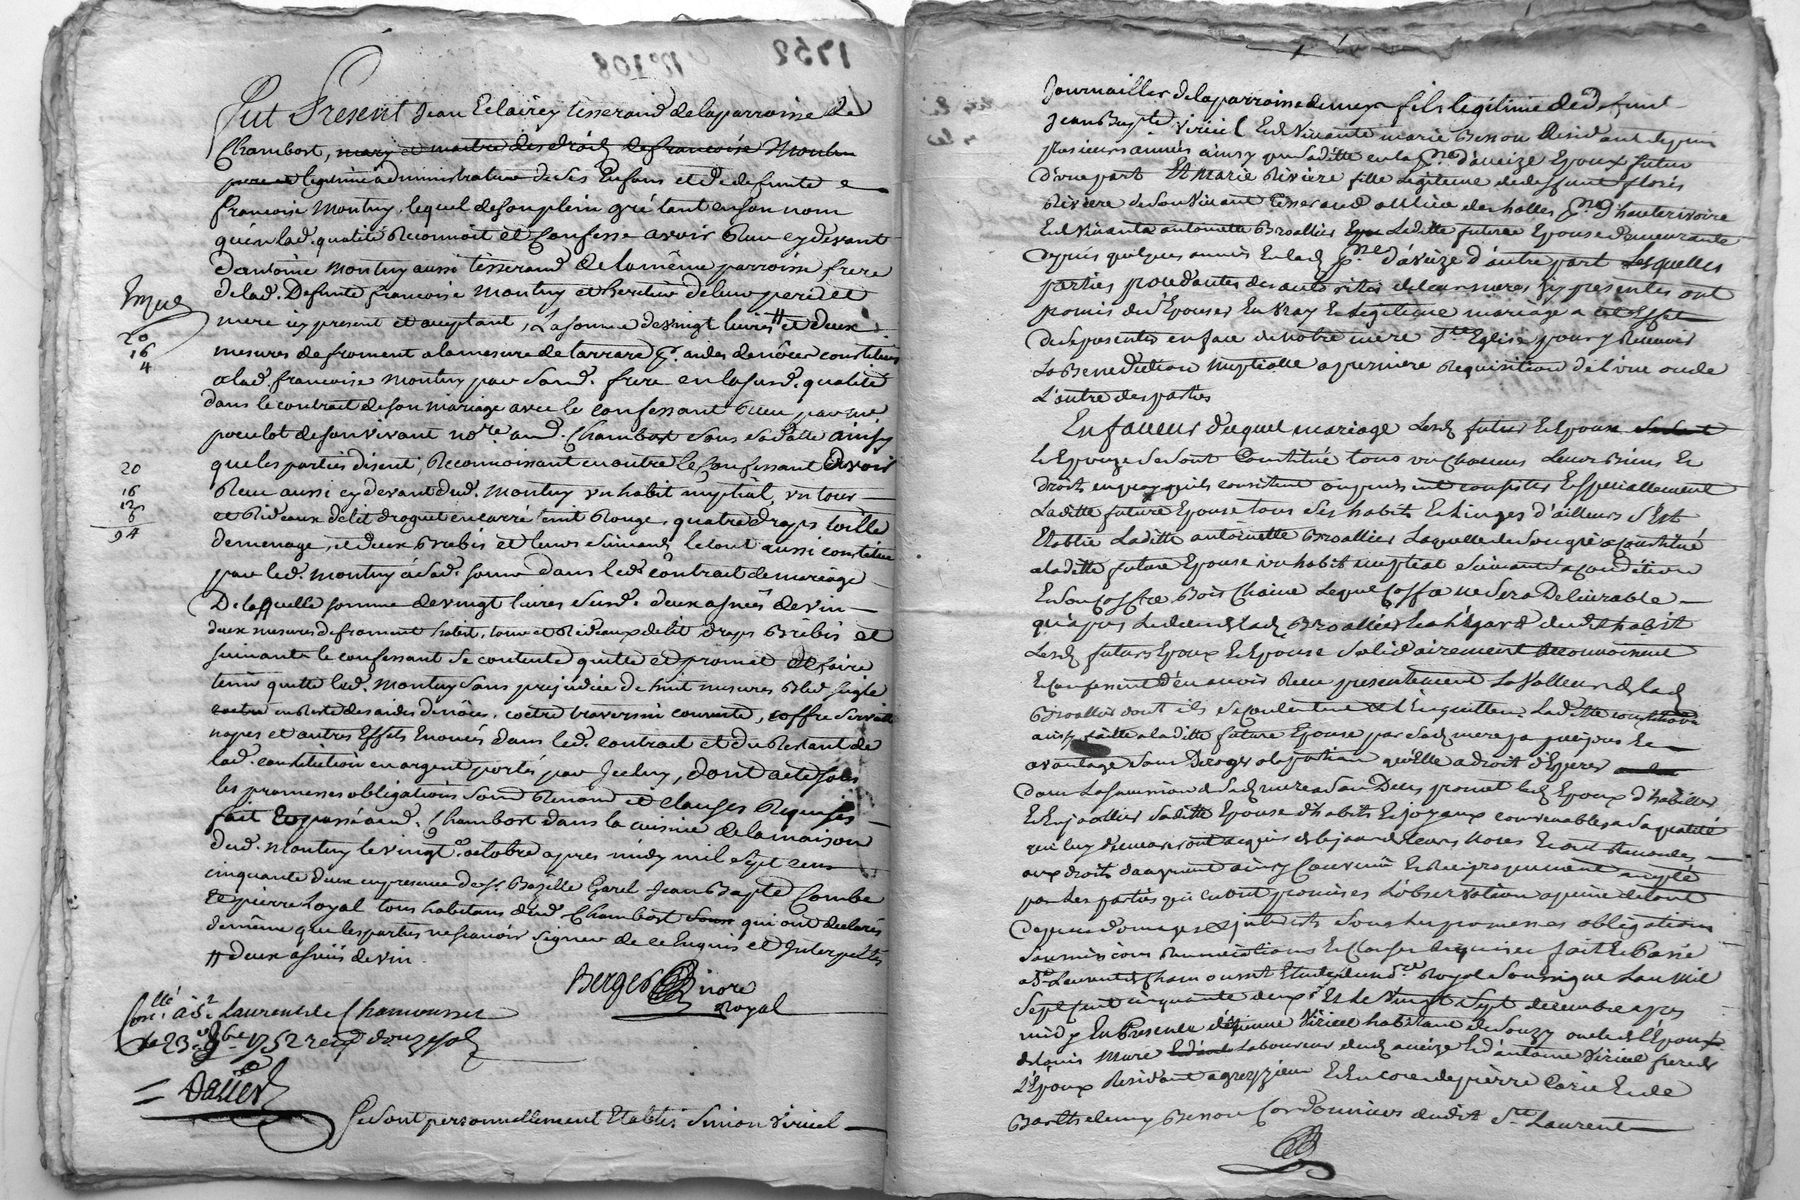 Fut Present Jean Eclairey tisserand de la parroisse de
Chambost, mary et maitre des droits de francoise Montmy
pere et legitime administrateur de ses Enfans et de defunte
francoise Montmy, lequel de son plein gré tant en son nom
qu'en lad. qualité Reconnoit et Confesse avoir Reçu cy devant
d'antoine Montmy aussi tisserand de la même parroisse frere
de lad. Defunte francoise Montmy et heritier de leur pere et
mere icy present et acceptant, La somme de vingt livres # et deux
mesures de froment a la mesure de tarrare p. aides de nôces constituées
a lad. francoise Montmy par sond. frere en la susd. qualité
dans le contrat de son mariage avec le confessant Reçu par me
poculot de son vivant nore. aud. Chambost sous sa datte ainsy
que les parties disent, Reconnoissant en outre le Confessant avoir
Reçu aussi cy devant dud. Montmy un habit nuptial, un tour
et Rideaux de lit droguet en carré teint Rouge, quatre draps toille
de menage, et deux brebis et leurs suivants, le tout aussi constitué
par led. Montmy à sad. soeur dans led. contrat de mariage
De laquelle somme de vingt livres susd. deux asnées de vin
deux mesures de froment habit, tour et Rideaux de lit draps Brebis et
suivants le confessant se contente quitte et promet de faire
tenir quitte led. Montmy sans prejudice de huit mesures Bled seigle
en Reste des aides de nôces, coetre traversin couverte, coffre serviette
napes et autres Effets Enoncés dans led. contrat et du Restant de
lad. constitution en argent portés par Iceluy, dont acte sous
les promesses obligations soumd Renond et clauses Requises
fait et passé aud. Chambost dans la cuisine de la maison
dud. Montmy le vingt octobre apres midy mil sept cens
cinquante deux en presence de sr. Bazille Garel Jean Bapte Combe
et pierre Loyal tous habitans dud. Chambost qui ont declarés
de même que les parties ne sçavoir signer de ce Enquis et Interpellés
# deux asnées de vin
Berger nore
Royal
20
16
4
20
16
12
6
94
Conllé à St Laurent de Chamousset
le 23e 8bre 1752 reçu douze sols
Dallet
Se sont personnellement Etablis Simon Viricel
Journallier de la parroisse de meys fils legitime de defunt
Jean Bapte Viricel Et de Vivante marie Besson Residant depuis
plusieurs années ainsy que saditte en lad. pse. d'aveize Epoux futur
d'une part Et Marie Riviere fille Legitime de deffunt floris
Riviere de son Vivant tisserand au lieu des halles pse. d'hauterivoire
Et de Vivante antoinette Broallier Laditte future Epouse demeurante
depuis quelques années En lad. pse. d'aveize d'autre part Lesquelles
parties procedantes des autorités de leurs meres icy presentes ont
promis de s'Epouser En vray Et legitime mariage a cet Effet
de se presenter en face de notre mere Ste Eglise pour y Recevoir
La Benediction nuptialle a premiere Requisition de l'une ou de
L'autre des parties
En faveur duquel mariage Lesd. futur Et Epouse
Et Epouze se sont Constitué tous un Chacuns Leurs Biens Et
droits en quoy qu'ils consistent ou puissent consister Et specialement
Laditte future Epouse tous ses habits Et linges d'ailleurs s'Est
Etablie Laditte antoinette Broallier Laquelle de son gré a Constitué
a laditte future Epouse un habit nuptial suivant sa condition
Et son Coffre Bois Chaine Lequel Coffre ne sera Delivrable
qu'apres Le deced de lad. Broallier Et a l'Egard dud. habit
Lesd. futurs Epoux Et Epouse solidairement Reconnoissent
Et confessent d'En avoir Reçu presentement La valleur de lad.
Broallier dont ils se contentent Et l'En quittent. Laditte constitution
ainsy faitte a laditte future Epouse par sad. mere
avantage sans Deroger a la portion qu'Elle a droit d'Esperer
dans La succession de sad. mere a son Deces promet led. Epoux d'habiller
Et Enjoaller saditte Epouse d'habits Et joyaux convenables a sa qualité
qui luy demeureront acquis des le jour de leurs noces Et ont Renoncés
aux droits d'augment ainsy Convenu Et Reciproquement accepté
par les parties qui En ont promises L'observation a peine de tous
depens dommages Et interets sous les promesses obligations
soumissions Renonciations Et Clauses Requises fait Et Passé
a St. Laurent de Chamousset Etude du nore. Royal soussigné Lan mil
sept cent cinquante deux Et Le Vingt sept decembre apres
midy En Presence d'Etienne Viricel habitant de Souzy oncle de l'Epoux
de Louis Mure Laboureur dud. aveize Et d'antoine Viricel frere de
L'Epoux Residant a grezieu Et Encore de pierre Carie Et de
Barthelemy Besson Cordonniers dudit St. Laurent